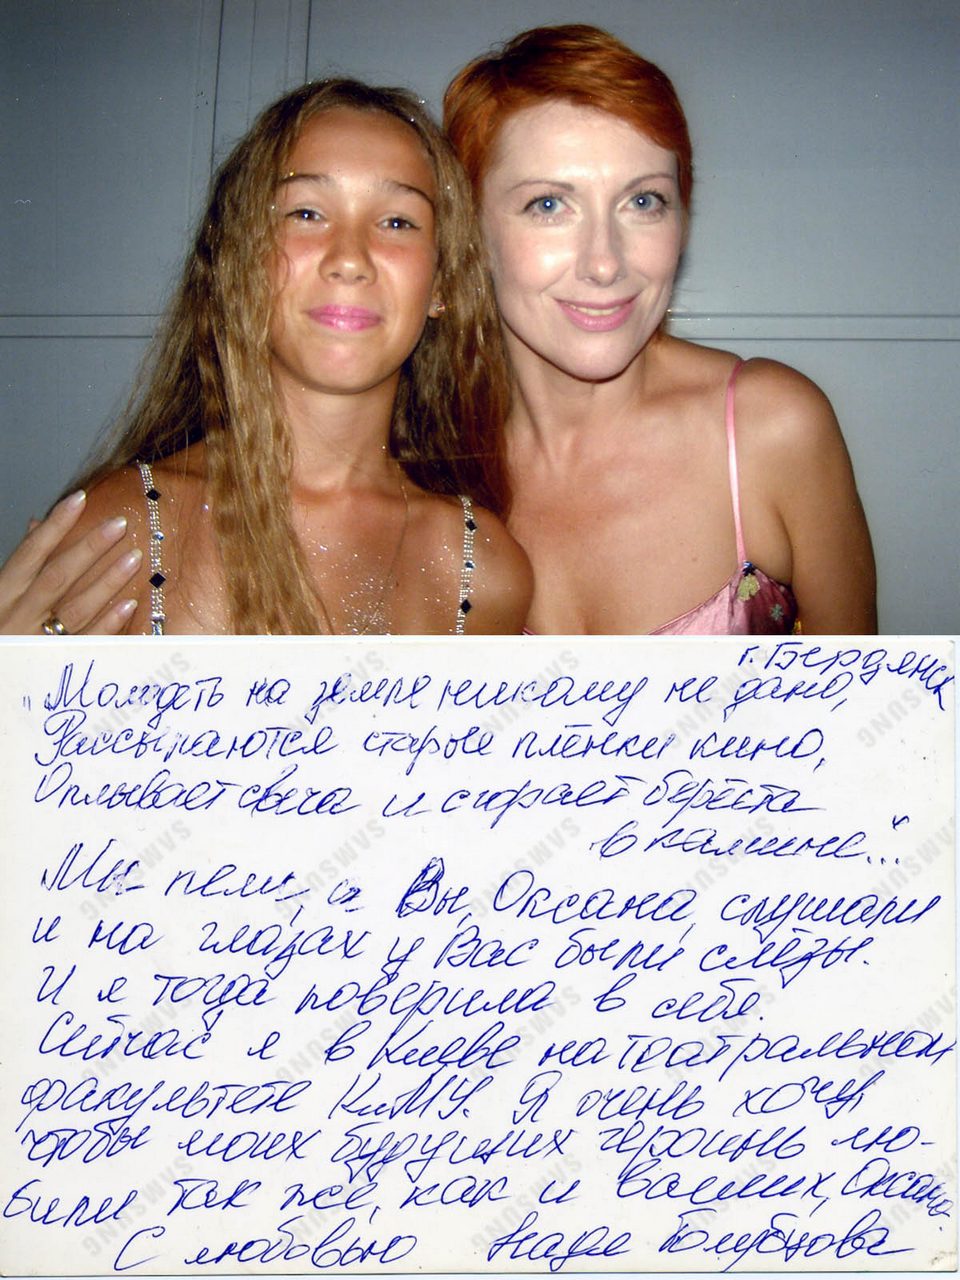 г. Бердянск
"Молодеть на земле никому не дано,
Рассыпаются старые плёнки кино,
Оплывает свеча и сгорает берёста
в камине..."
Мы пели, и Вы, Оксана, слушали
и на глазах у Вас были слёзы.
И я тогда поверила в себя.
Сейчас я в Киеве на театральном
факультете КиМУ. Я очень хочу,
чтобы моих будущих героинь лю-
били так же, как и ваших, Оксана.
С любовью Надя Голубцова
SAMSUNG